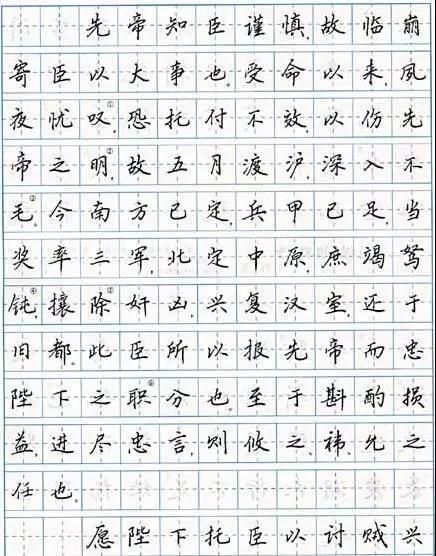 先帝知臣谨慎,故临崩
寄臣以大事也。受命以来,夙
夜忧叹①,恐托付不效,以伤先
帝之明②,故五月渡泸,深入不
毛③。今南方已定,兵甲已足,当
奖率三军,北定中原,庶竭驽
钝④,攘除⑤奸凶,兴复汉室,还于
旧都。此臣所以报先帝而忠
陛下之职⑥分也。至于斟酌损
益,进尽忠言,则攸之、祎、允之
任也。
愿陛下托臣以讨贼兴